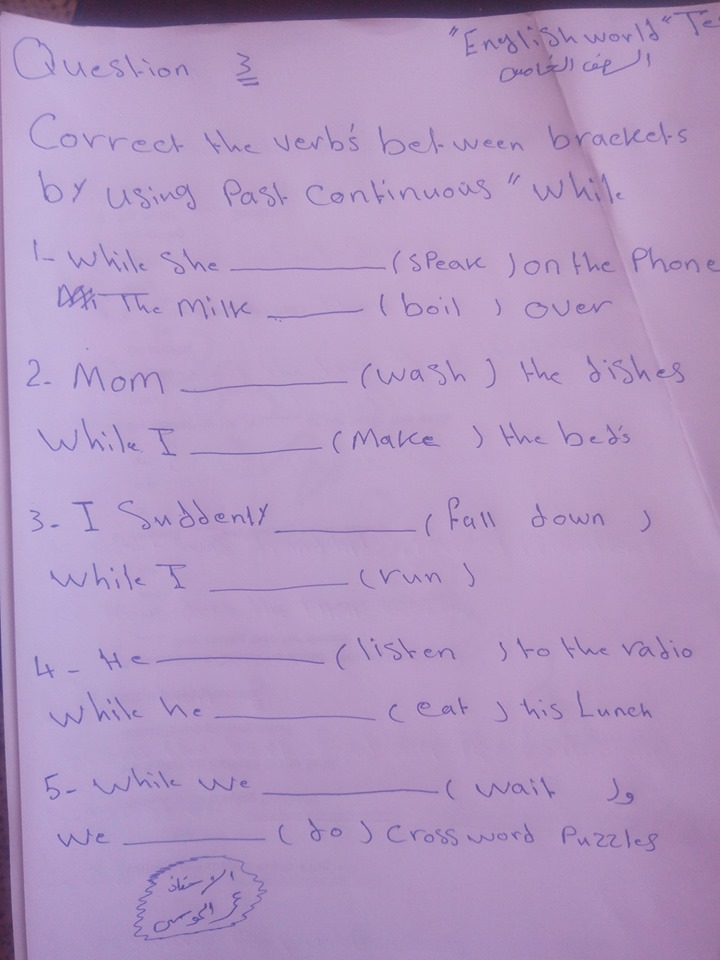 "English world" Te
الصف الخامس
Question 3
Correct the verb's between brackets
by using Past Continuous "While
1- While she ________ (speak ) on the Phone
The Milk ______ ( boil ) over
2- Mom ________ (wash ) the dishes
While I ________ (Make ) the bed's
3- I Suddenly ________ ( fall down )
While I ________ (run )
4- He ________ (listen ) to the radio
While he ________ ( eat ) his Lunch
5- While we ________ ( wait ) و
We ________ ( do ) Crossword Puzzles
الاستاذ